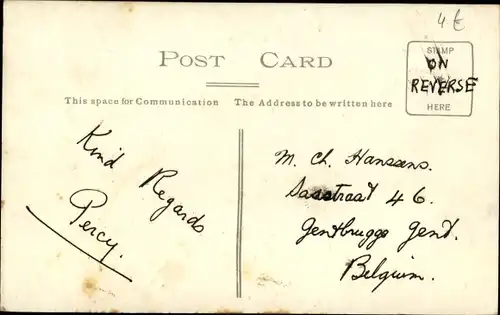 4 €
POST CARD
STAMP
ON
REVERSE
HERE
This space for Communication The Address to be written here
Kind
Regards
Percy.
M. Ch. Hanssens.
Sasstraat 46.
Gentbrugge Gent.
Belgium.